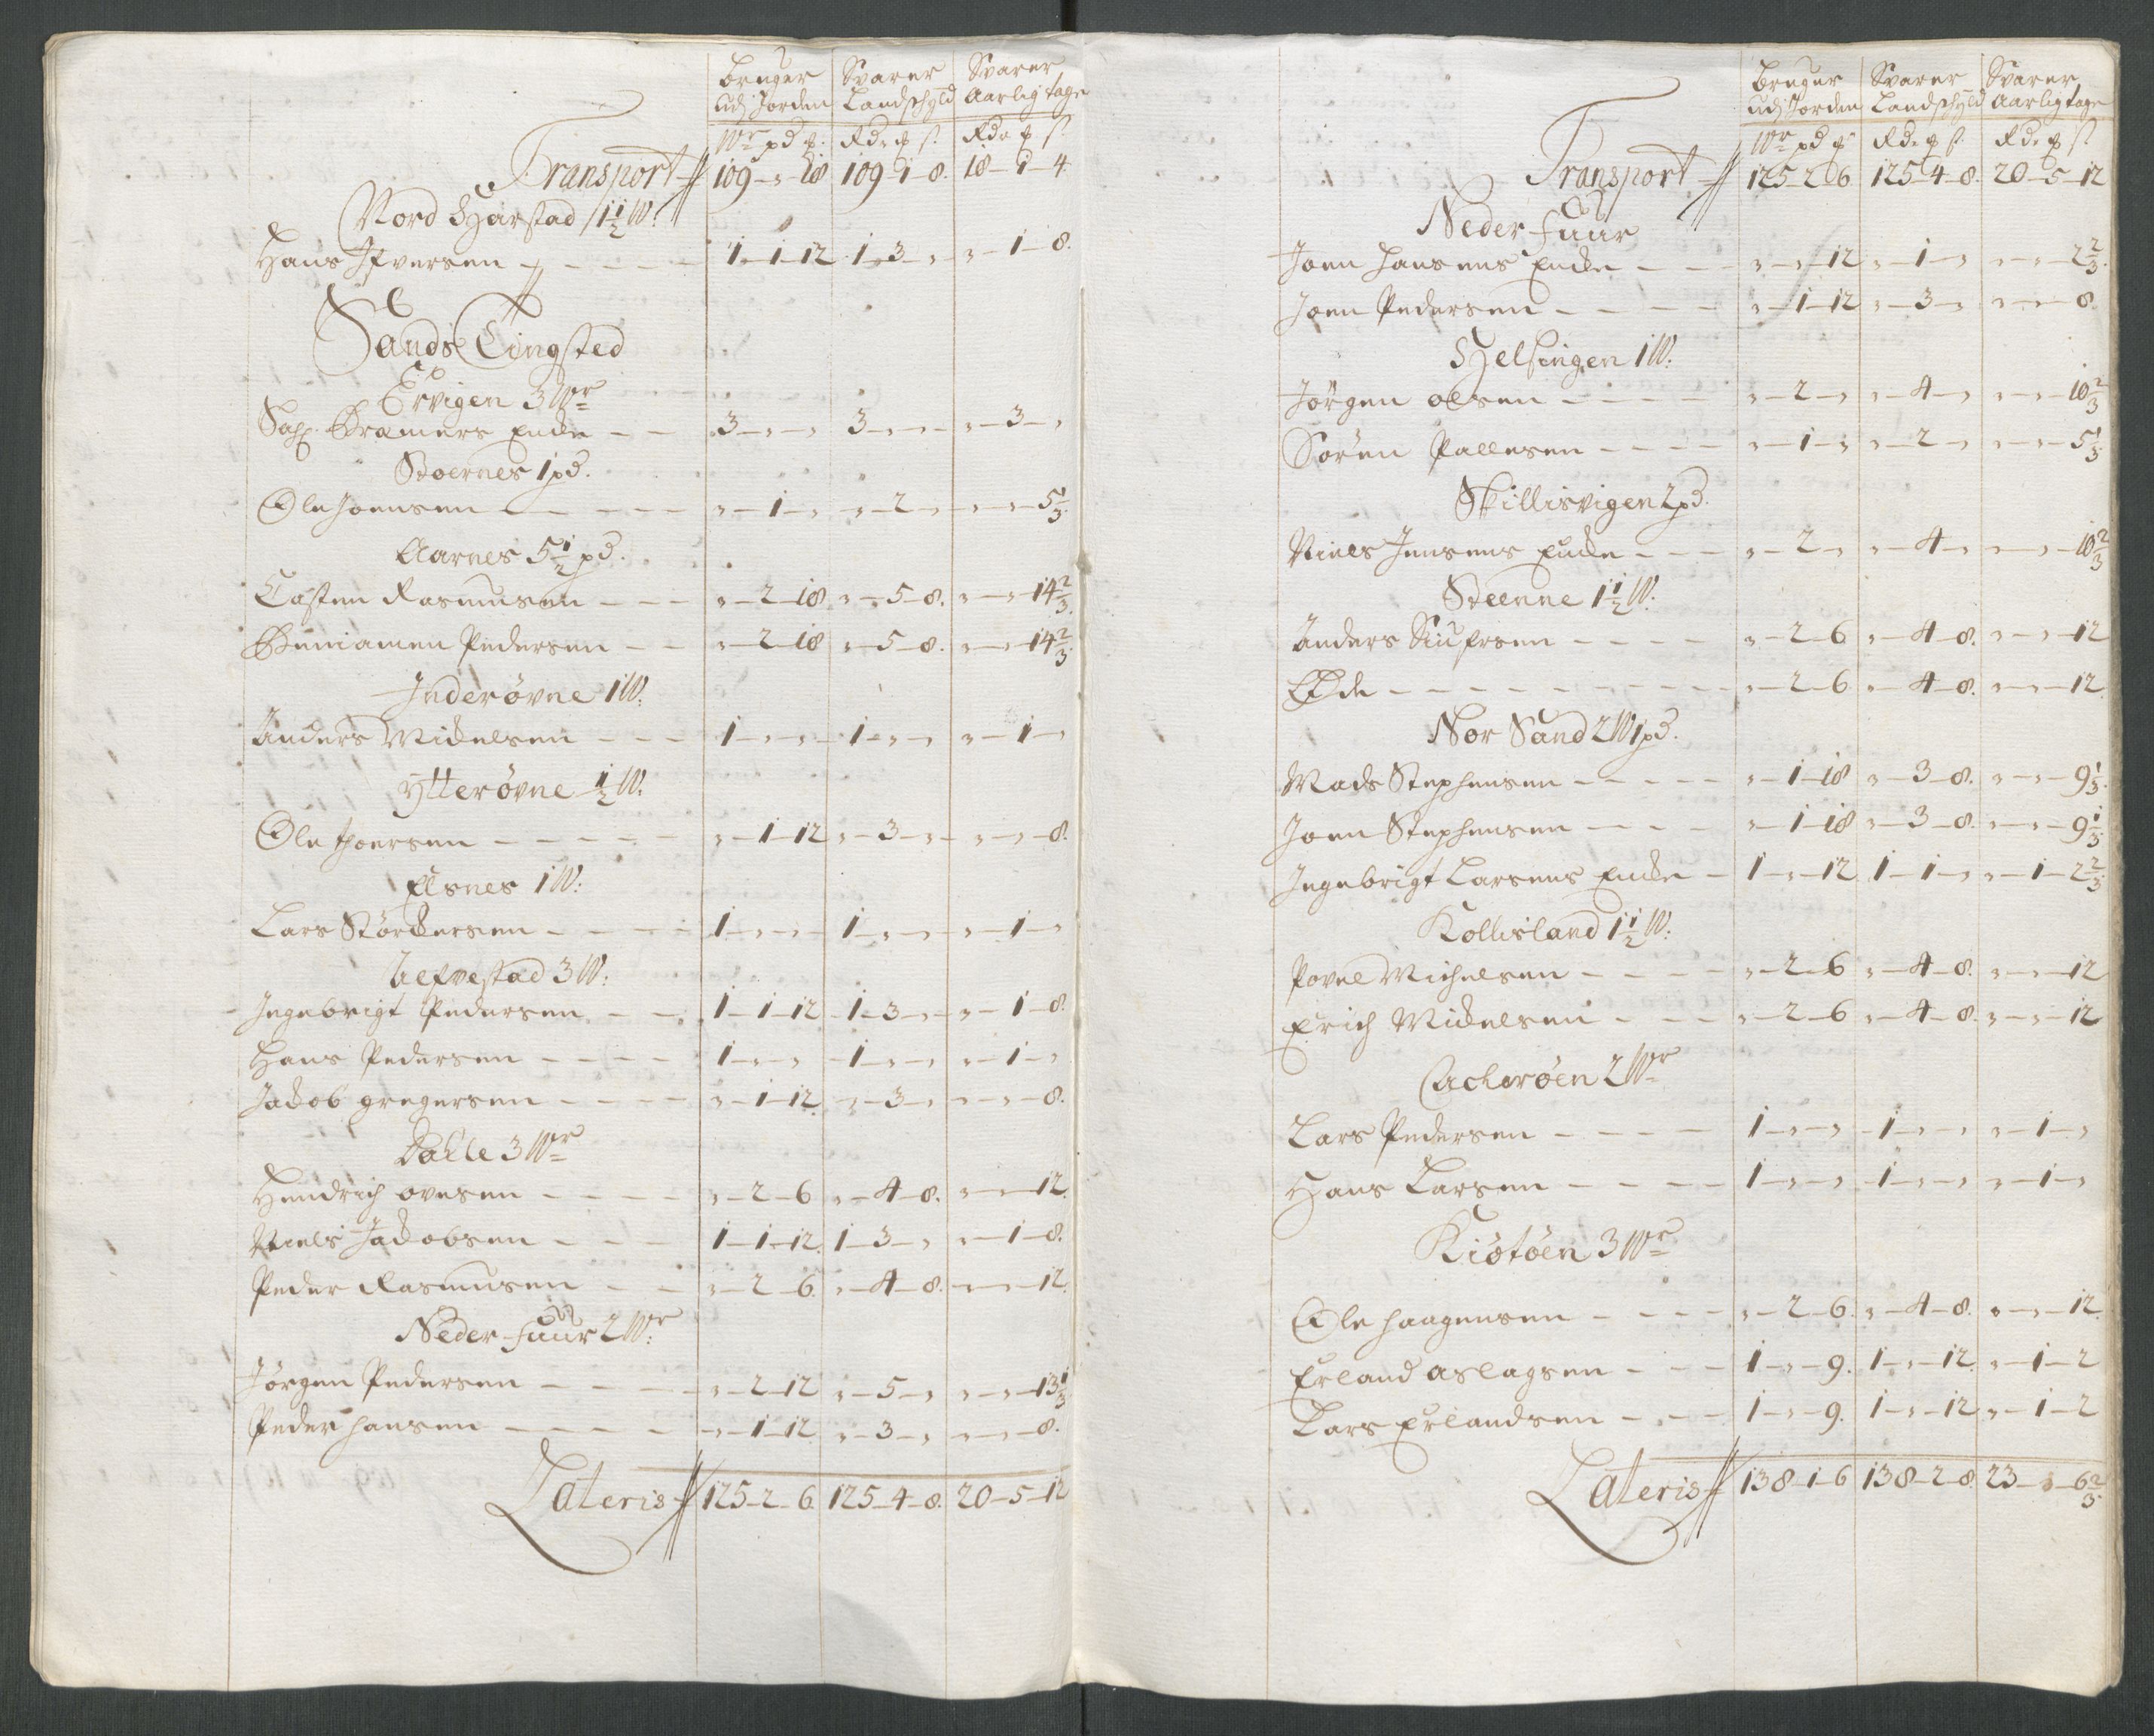 Bruger Svarer Svarer
udj Jorden Landschyld Aarlig tage
Wr pd ꝑ. Rd. ꝑ s. Rd. ꝑ s
Transport 109 - „ - 18 109 - 1 - 8. 18 - 1 - 4.
Nord Hiarstad / 1½ W:
Hans Ifversen - - - - 1 - 1 - 12 1 - 3 - „ „ - 1 - 8.
Sands Tingsted
Ervigen 3 Wr
Sal. Bramers Encke - - 3 - „ - „ 3 - „ - „ „ - 3 - „
Stoernes 1 pd.
Ole Joensen - - - - „ - 1 - „ „ - 2 - „ „ - „ - 5⅓
Aarnes 5½ pd.
Casten Rasmusen - - - „ - 2 - 18 „ - 5 - 8. „ - „ - 14⅔
Beniamen Pedersen - - „ - 2 - 18 „ - 5 - 8. „ - „ - 14⅔
Inderøvne 1 W.
Anders Mickelsen - - - 1 - „ - „ 1 - „ - „ „ - 1 - „
Ytterøvne ½ W.
Ole Thoersen - - - - „ - 1 - 12 „ - 3 - „ „ - „ - 8.
Elsnes 1 W:
Lars Størckersen - - - - 1 - „ - „ 1 - „ - „ „ - 1 - „
Ulfvestad 3 W:
Ingebrigt Pedersen - - 1 - 1 - 12 1 - 3 - „ „ - 1 - 8.
Hans Pedersen - - - - 1 - „ - „ 1 - „ - „ „ - 1 - „
Jakob gregersen - - - - „ - 1 - 12. „ - 3 - „ „ - „ - 8.
Dahle 3 Wr
Hendrich ovesen - - - - „ - 2 - 6 „ - 4 - 8. „ - „ - 12.
Niels Jackobsen - - - 1 - 1 - 12. 1 - 3 - „ „ - 1 - 8.
Peder Rasmusen - - „ - 2 - 6. „ - 4 - 8. „ - „ - 12.
Neder-fuur 2 Wr
Jørgen Pedersen - - - - „ - 2 - 12 „ - 5 - „ „ - „ - 13⅓
Peder hansen - - - - „ - 1 - 12. „ - 3 - „ „ - „ - 8.
Lateris 125 - 2 - 6. 125 - 4 - 8. 20 - 5 - 12
Bruger Svarer Svarer
udj Jorden Landschyld Aarlig tage
Wr pd ꝑ Rd. ꝑ s. Rd. ꝑ s
Transport 125 - 2 - 6 125 - 4 - 8. 20 - 5 - 12
Neder-fuur
Joen hansens Encke - - - „ - „ - 12 „ - 1 - „ „ - „ - 2⅔.
Joen Pedersen - - - - „ - 1 - 12 „ - 3 - „ „ - „ - 8.
Helsingen 1 W:
Jørgen olsen - - - - „ - 2 - „ „ - 4 - „ „ - „ - 10⅔
Søren Pallesen - - - - „ - 1 - „ „ - 2 - „ „ - „ - 5⅓
Skillisvigen 2 pd.
Niels Jensens Encke - - - „ - 2 - „ „ - 4 - „ „ - „ - 10⅔
Steenne 1½ W:
Anders Siufrsen - - - - „ - 2 - 6 „ - 4 - 8. „ - „ - 12
Øde - - - - - - - - „ - 2 - 6 „ - 4 - 8. „ - „ - 12.
Nor Sand 2 W 1 pd.
Mads Stephensen - - - - „ - 1 - 18 „ - 3 - 8. „ - „ - 9⅓.
Joen Stephensen - - - - „ - 1 - 18 „ - 3 - 8. „ - „ - 9⅓.
Ingebrigt Larsens Encke - 1 - „ - 12 1 - 1 - „ „ - 1 - 2⅔.
Kollisland 1½ W:
Povel Michelsen - - - - „ - 2 - 6 „ - 4 - 8. „ - „ - 12
Erich Mickelsen - - - „ - 2 - 6 „ - 4 - 8. „ - „ - 12
Cackerøen 2 Wr
Lars Pedersen - - - - 1 - „ - „ 1 - „ - „ „ - 1 - „
Hans Larsen - - - - 1 - „ - „ 1 - „ - „ „ - 1 - „
Kiøtøen 3 Wr
Ole haagensen - - - - „ - 2 - 6. „ - 4 - 8. „ - „ - 12.
Erland aslagsen - - - 1 - „ - 9. 1 - „ - 12. „ - 1 - 2
Lars Erlandsen - - - 1 - „ - 9. 1 - „ - 12 „ - 1 - 2
Lateris 138 - 1 - 6 138 - 2 - 8. 23 - „ - 6⅔.